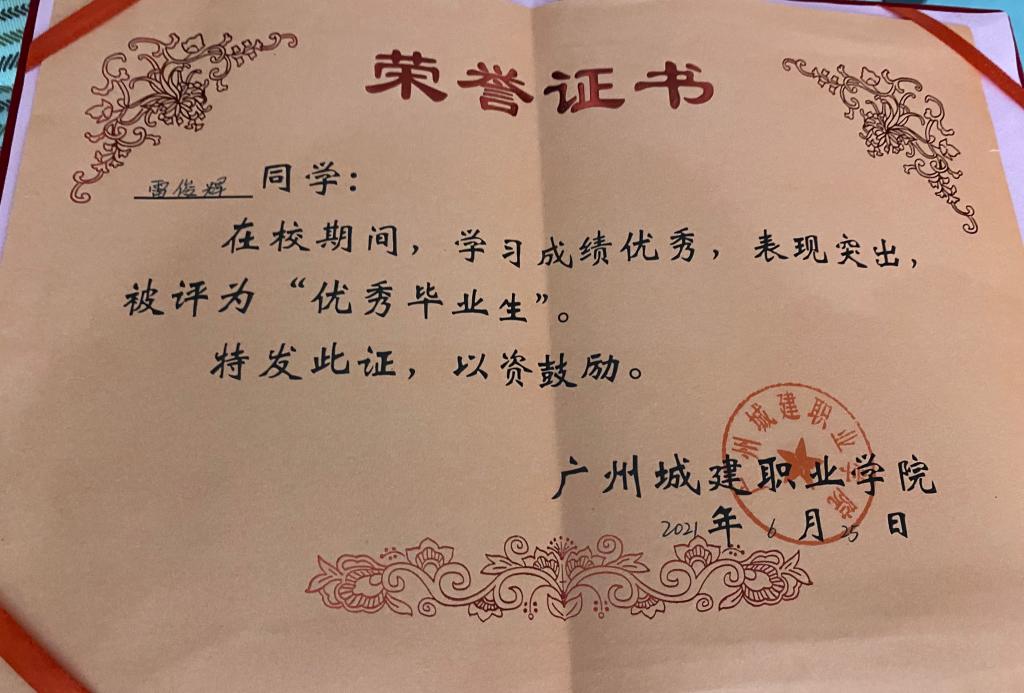 荣誉证书
雷俊辉 同学：
在校期间，学习成绩优秀，表现突出，
被评为“优秀毕业生”。
特发此证，以资鼓励。
广州城建职业学院
广州城建职业学院
2021 年 6 月 25 日